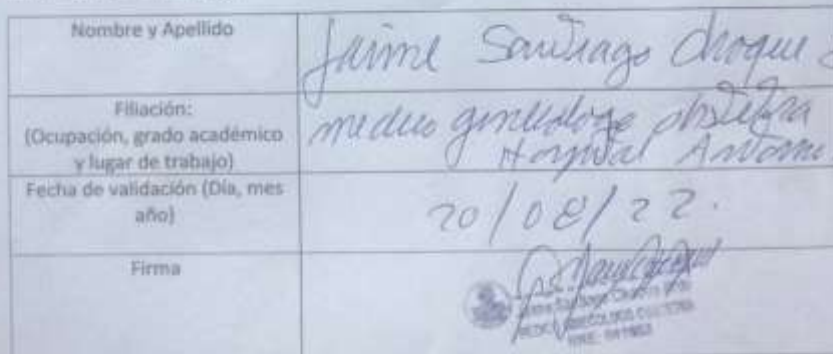 Nombre y Apellido
Jaime Santiago Choque
Filiación:
(Ocupación, grado académico
y lugar de trabajo)
medico ginecologo obstetra
Hospital Antonio
Fecha de validación (Día, mes
año)
20/08/22.
Firma
MEDICO GINECOLOGO OBSTETRA